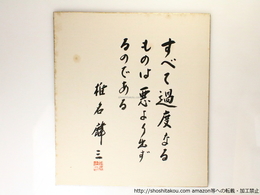 すべて過度なる
ものは悪より出ず
るのである
椎名麟三
http://shoshitakou.com amazon等への転載・加工禁止